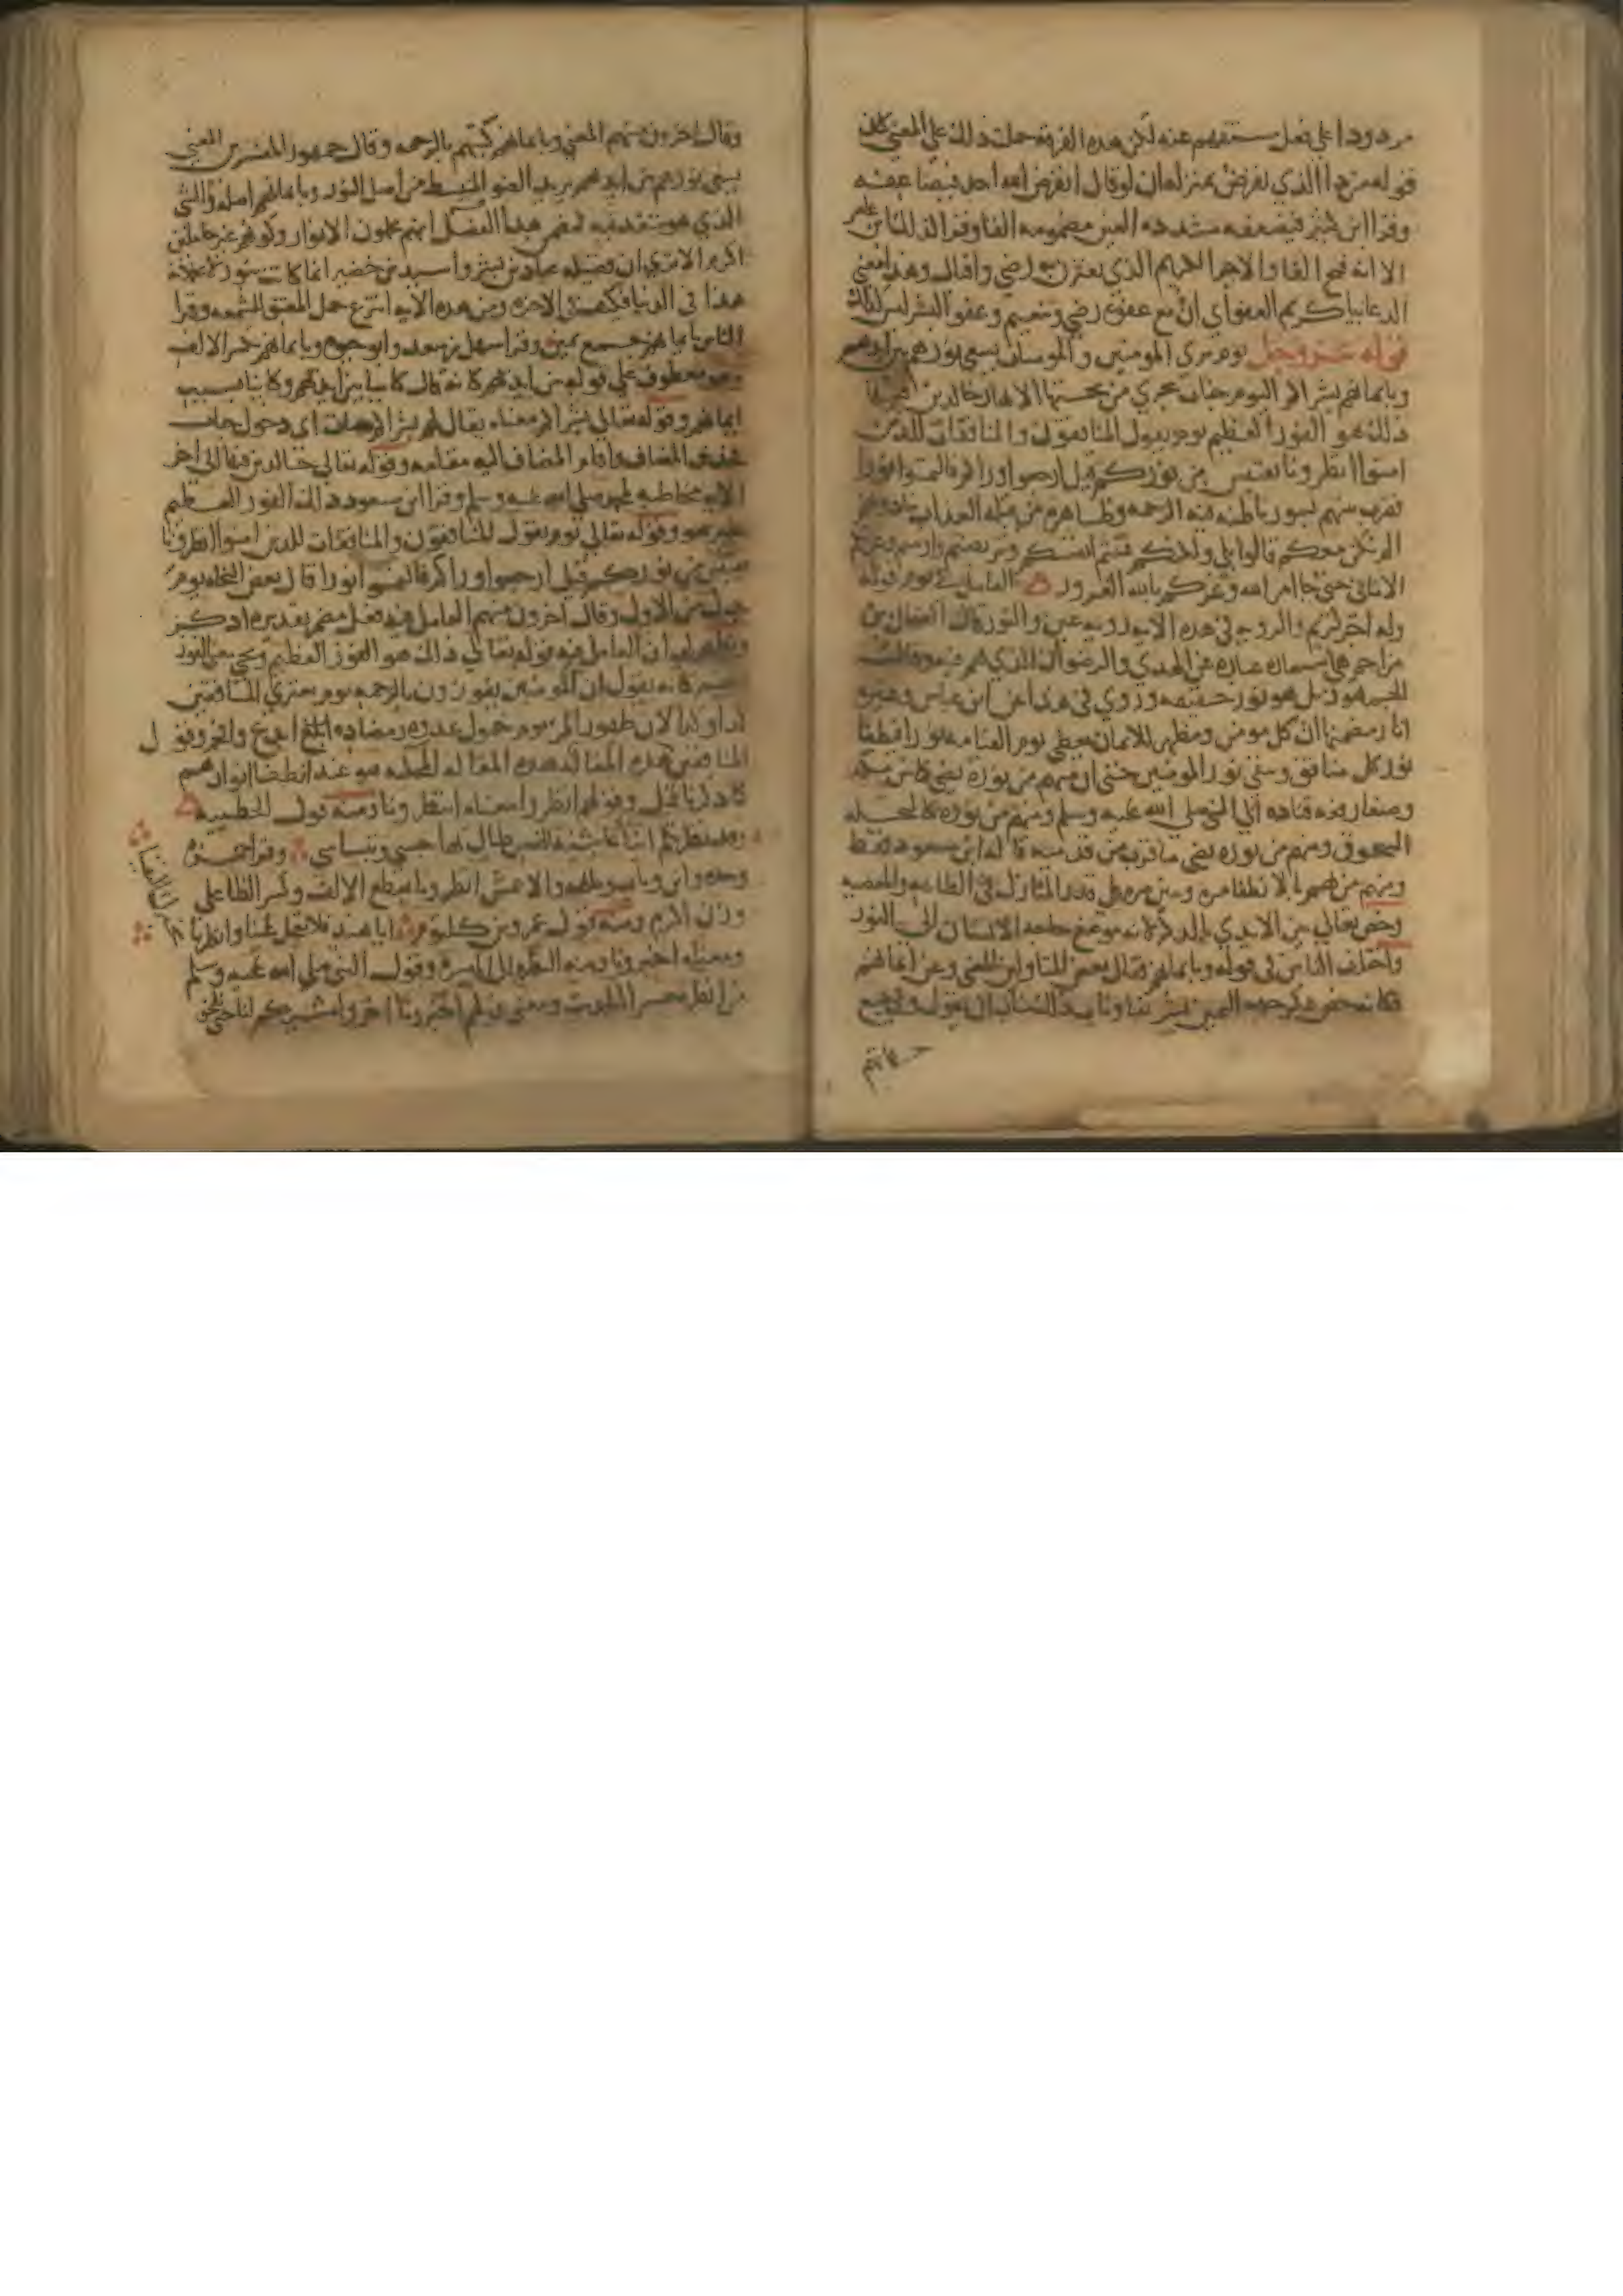 مردودا على فعل مستفهم عنه لكن هذه الفرقة حملت ذلك على المعنى كان
قوله من ذا الذي يقرض بمنزلة ان لو قال ايقرض الله احد فيضاعفه
وقرا ابن كثير فيضعفه مشددة العين مضمومة الفا وقرا ابن عامر
الا انه فتح الفا والاجر الكريم الذي يقترن به رضى واقبال وهذا معنى
الدعا يا كريم العفو اي ان مع عفوه رضى وتنعيم وعفو البشر ليس كذلك
قوله عز وجل يوم ترى المومنين والمومنات يسعى نورهم بين ايديهم
وبايمانهم بشراكم اليوم جنات تجري من تحتها الانهار خالدين فيها
ذلك هو الفوز العظيم يوم يقول المنافقون والمنافقات للذين
امنوا انظرونا نقتبس من نوركم قيل ارجعوا وراكم فالتمسوا نورا
فضرب بينهم بسور باطنه فيه الرحمة وظاهره من قبله العذاب ينادونهم
الم نكن معكم قالوا بلى ولكنكم فتنتم انفسكم وتربصتم وارتبتم وغرتكم
الاماني حتى جا امر الله وغركم بالله الغرور العامل في يوم قوله
وله اجر كريم والرويه في هذه الاية رويه عين والنور قال الضحاك بن
مزاحم هي استعارة عبارة عن الهدى والرضوان الذي هم فيه وقالت
الجمهور بل هو نور حقيقة وروي في هذا عن ابن عباس وغيره
اثار مضمنها ان كل مومن ومظهر للايمان يعطى يوم القيامة نورا فيطفا
نور كل منافق ويبقى نور المومنين حتى ان منهم من نوره يضي كما بين مكة
وصنعا رفعه قتادة الى النبي صلى الله عليه وسلم ومنهم من نوره كالنخلة
السحوق ومنهم من نوره يضي ما قرب من قدميه قاله ابن مسعود فقط
ومنهم من يهم بالانطفا مرة ويبين مرة على قدر المنازل في الطاعة والمعصية
وخص تعالى بين الايدي بالذكر لانه موضع حاجة الانسان الى النور
واختلف الناس في قوله وبايمانهم فقال بعض المتاولين المعنى وعن ايمانهم
فكانه خص ذكر جهة اليمين تشريفا وناب ذلك مناب ان يقول وفي جميع
جهاتهم
وقال اخرون منهم المعنى وبايمانهم كتبهم بالرحمة وقال جمهور المفسرين المعنى
يسعى نورهم بين ايديهم يريد الضو المنبسط من اصل النور وبايمانهم اصله والشي
الذي هو متقد فيه فمضمن هذا القول انهم يحملون الانوار وكونهم غير حاملين
اكرم الا ترى ان فضيلة عباد بن بشر واسيد بن حضير انما كانت بنور لا يحملانه
هذا في الدنيا فكيف في الاخرة ومن هذه الاية انتزع حمل المعتق للشمعة وقرا
الناس بايمانهم جمع يمين وقرا سهل بن سعد وابو حيوة وبايمانهم بكسر الالف
وهو معطوف على قوله بين ايديهم كانه قال كاينا بين ايديهم وكاينا بسبب
ايمانهم وقوله تعالى بشراكم معناه يقال لهم بشراكم جنات اي دخول جنات
فحذف المضاف واقام المضاف اليه مقامه وقوله تعالى خالدين فيها الى اخر
الاية مخاطبة لمحمد صلى الله عليه وسلم وقرا ابن مسعود ذلك الفوز العظيم
بغير هو وقوله تعالى يوم يقول المنافقون والمنافقات للذين امنوا انظرونا
نقتبس من نوركم قيل ارجعوا وراكم فالتمسوا نورا قال بعض النحاة يوم
بدل من الاول وقال اخرون منهم العامل فيه فعل مضمر تقديره اذكر
ويظهر لي ان العامل فيه قوله تعالى ذلك هو الفوز العظيم ويجي معنى الفوز
كانه يقول ان المومنين يفوزون بالرحمة يوم يعتري المنافقين
كذا وكذا لان ظهور المر يوم خمول عدوه ومضاده ابدع وافخر وقول
المنافقين هذه المقالة المحكية هو عند انطفا انوارهم
كما ذكرنا قبل وقولهم انظرونا معناه انتظرونا ومنه قول الحطيئة
وقد نظرتكم ايناء عاشية للخمس طال بها حبسي وتنساسي وقرا حمزة
وحده وابن وثاب وطلحة والاعمش انظرونا بقطع الالف وكسر الظا على
وزن اكرم ومنه قول عمرو بن كلثوم ابا هند فلا تعجل علينا وانظرنا
نخبرك اليقينا
ومعناه اخرونا ومنه النظرة الى ميسرة وقول النبي صلى الله عليه وسلم
من انظر معسرا الحديث ومعنى قولهم اخرونا اخروا مشيكم لنا حتى نلحق